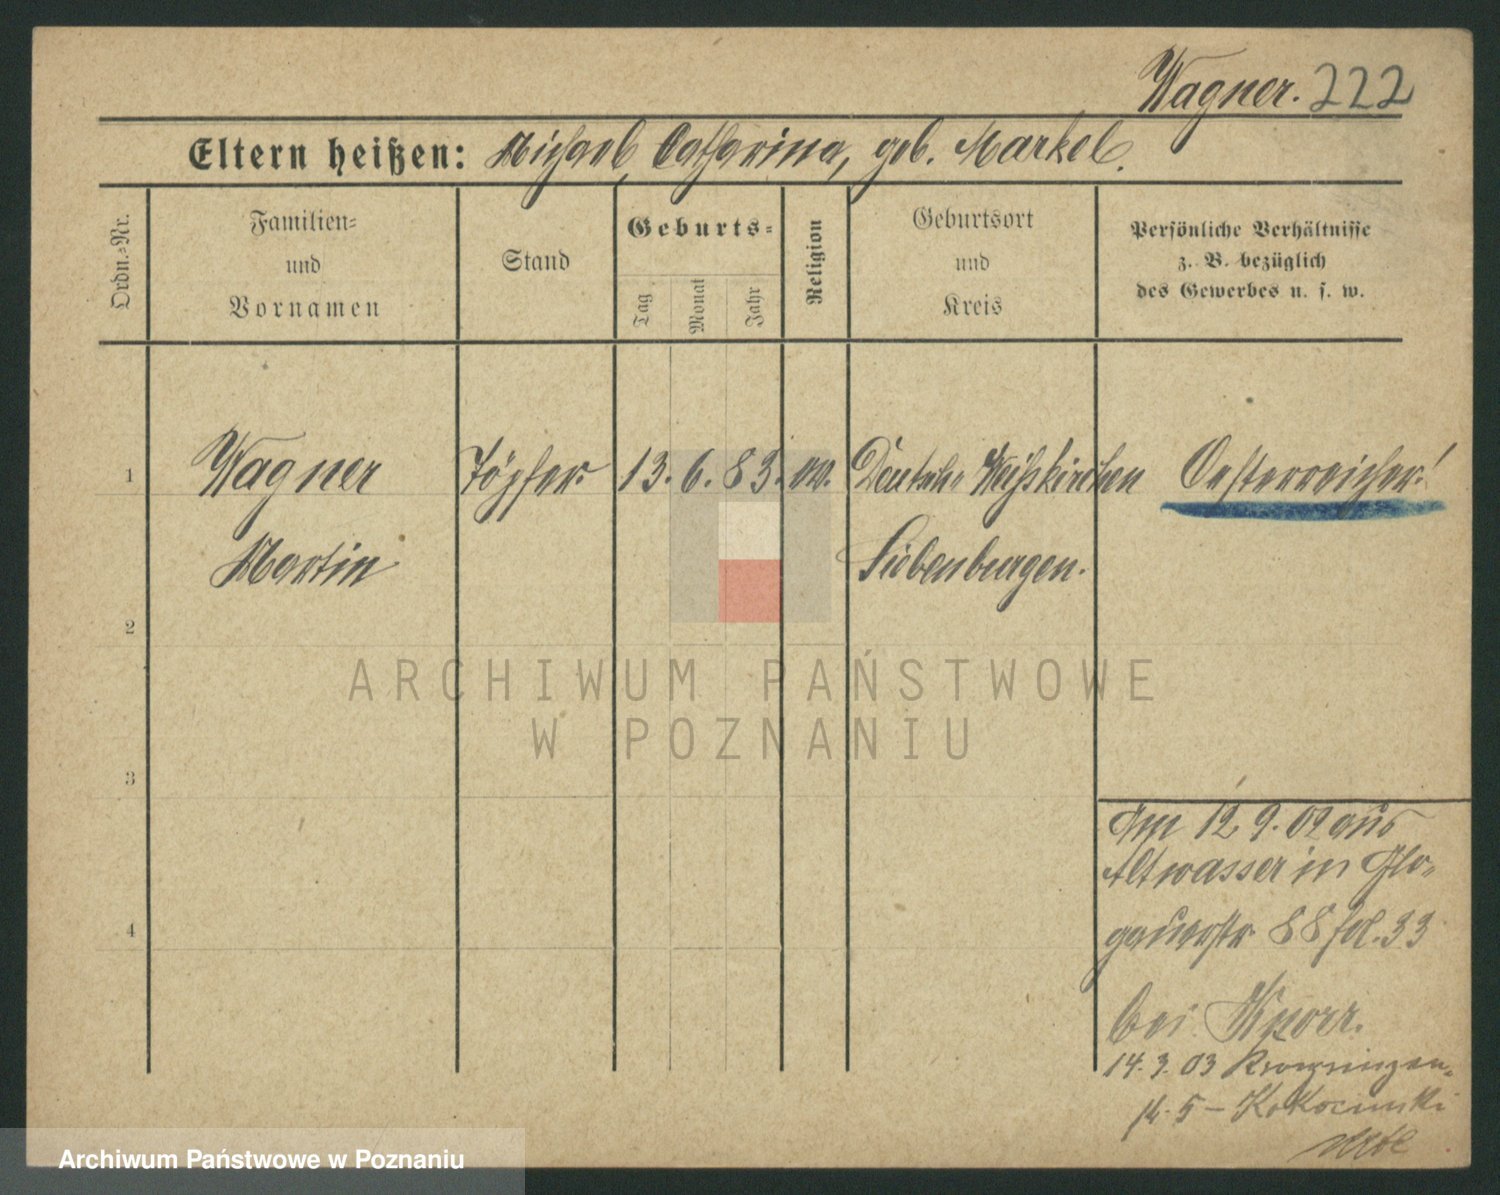 Wagner. 222
Eltern heißen: Michael, Catharina, geb. Markel.
Ordn.-Nr.
Familien-
und
Vornamen
Stand
Geburts-
Tag
Monat
Jahr
Religion
Geburtsort
und
Kreis
Persönliche Verhältnisse
z. B. bezüglich
des Gewerbes u. s. w.
1 Wagner Töpfer 13. 6. 83. ev. Deutsch- Weißkirchen Oesterreicher!
Martin Siebenburgen.
2
ARCHIWUM PAŃSTWOWE
W POZNANIU
3
4
Am 12. 9. 02 aus
Altwasser in Glo-
gauerstr 88 fol. 33
bei Knorr.
14. 3. 03 Kronprinzen-
5 - Kokocinski
Archiwum Państwowe w Poznaniu